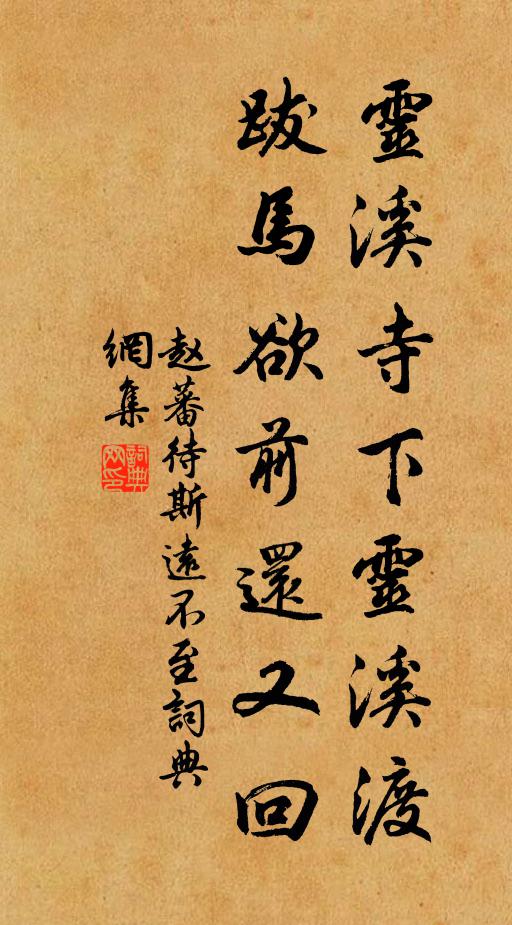 靈溪寺下靈溪渡
跋馬欲前還又回
赵蕃待斯遠不至詞典
網集
詞典
网印